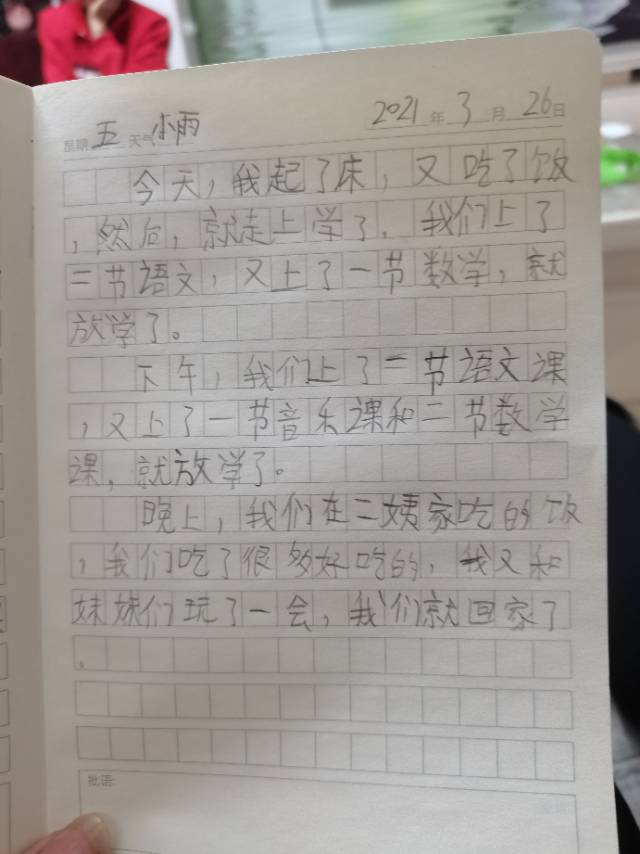 星期 五 天气 小雨 2021年3月26日
今天，我起了床，又吃了饭
，然后，就走上学了。我们上了
二节语文，又上了一节数学，就
放学了。
下午，我们上了二节语文课
，又上了一节音乐课和二节数学
课，就放学了。
晚上，我们在二姨家吃的饭
，我们吃了很多好吃的，我又和
妹妹们玩了一会，我们就回家了
。
批语: